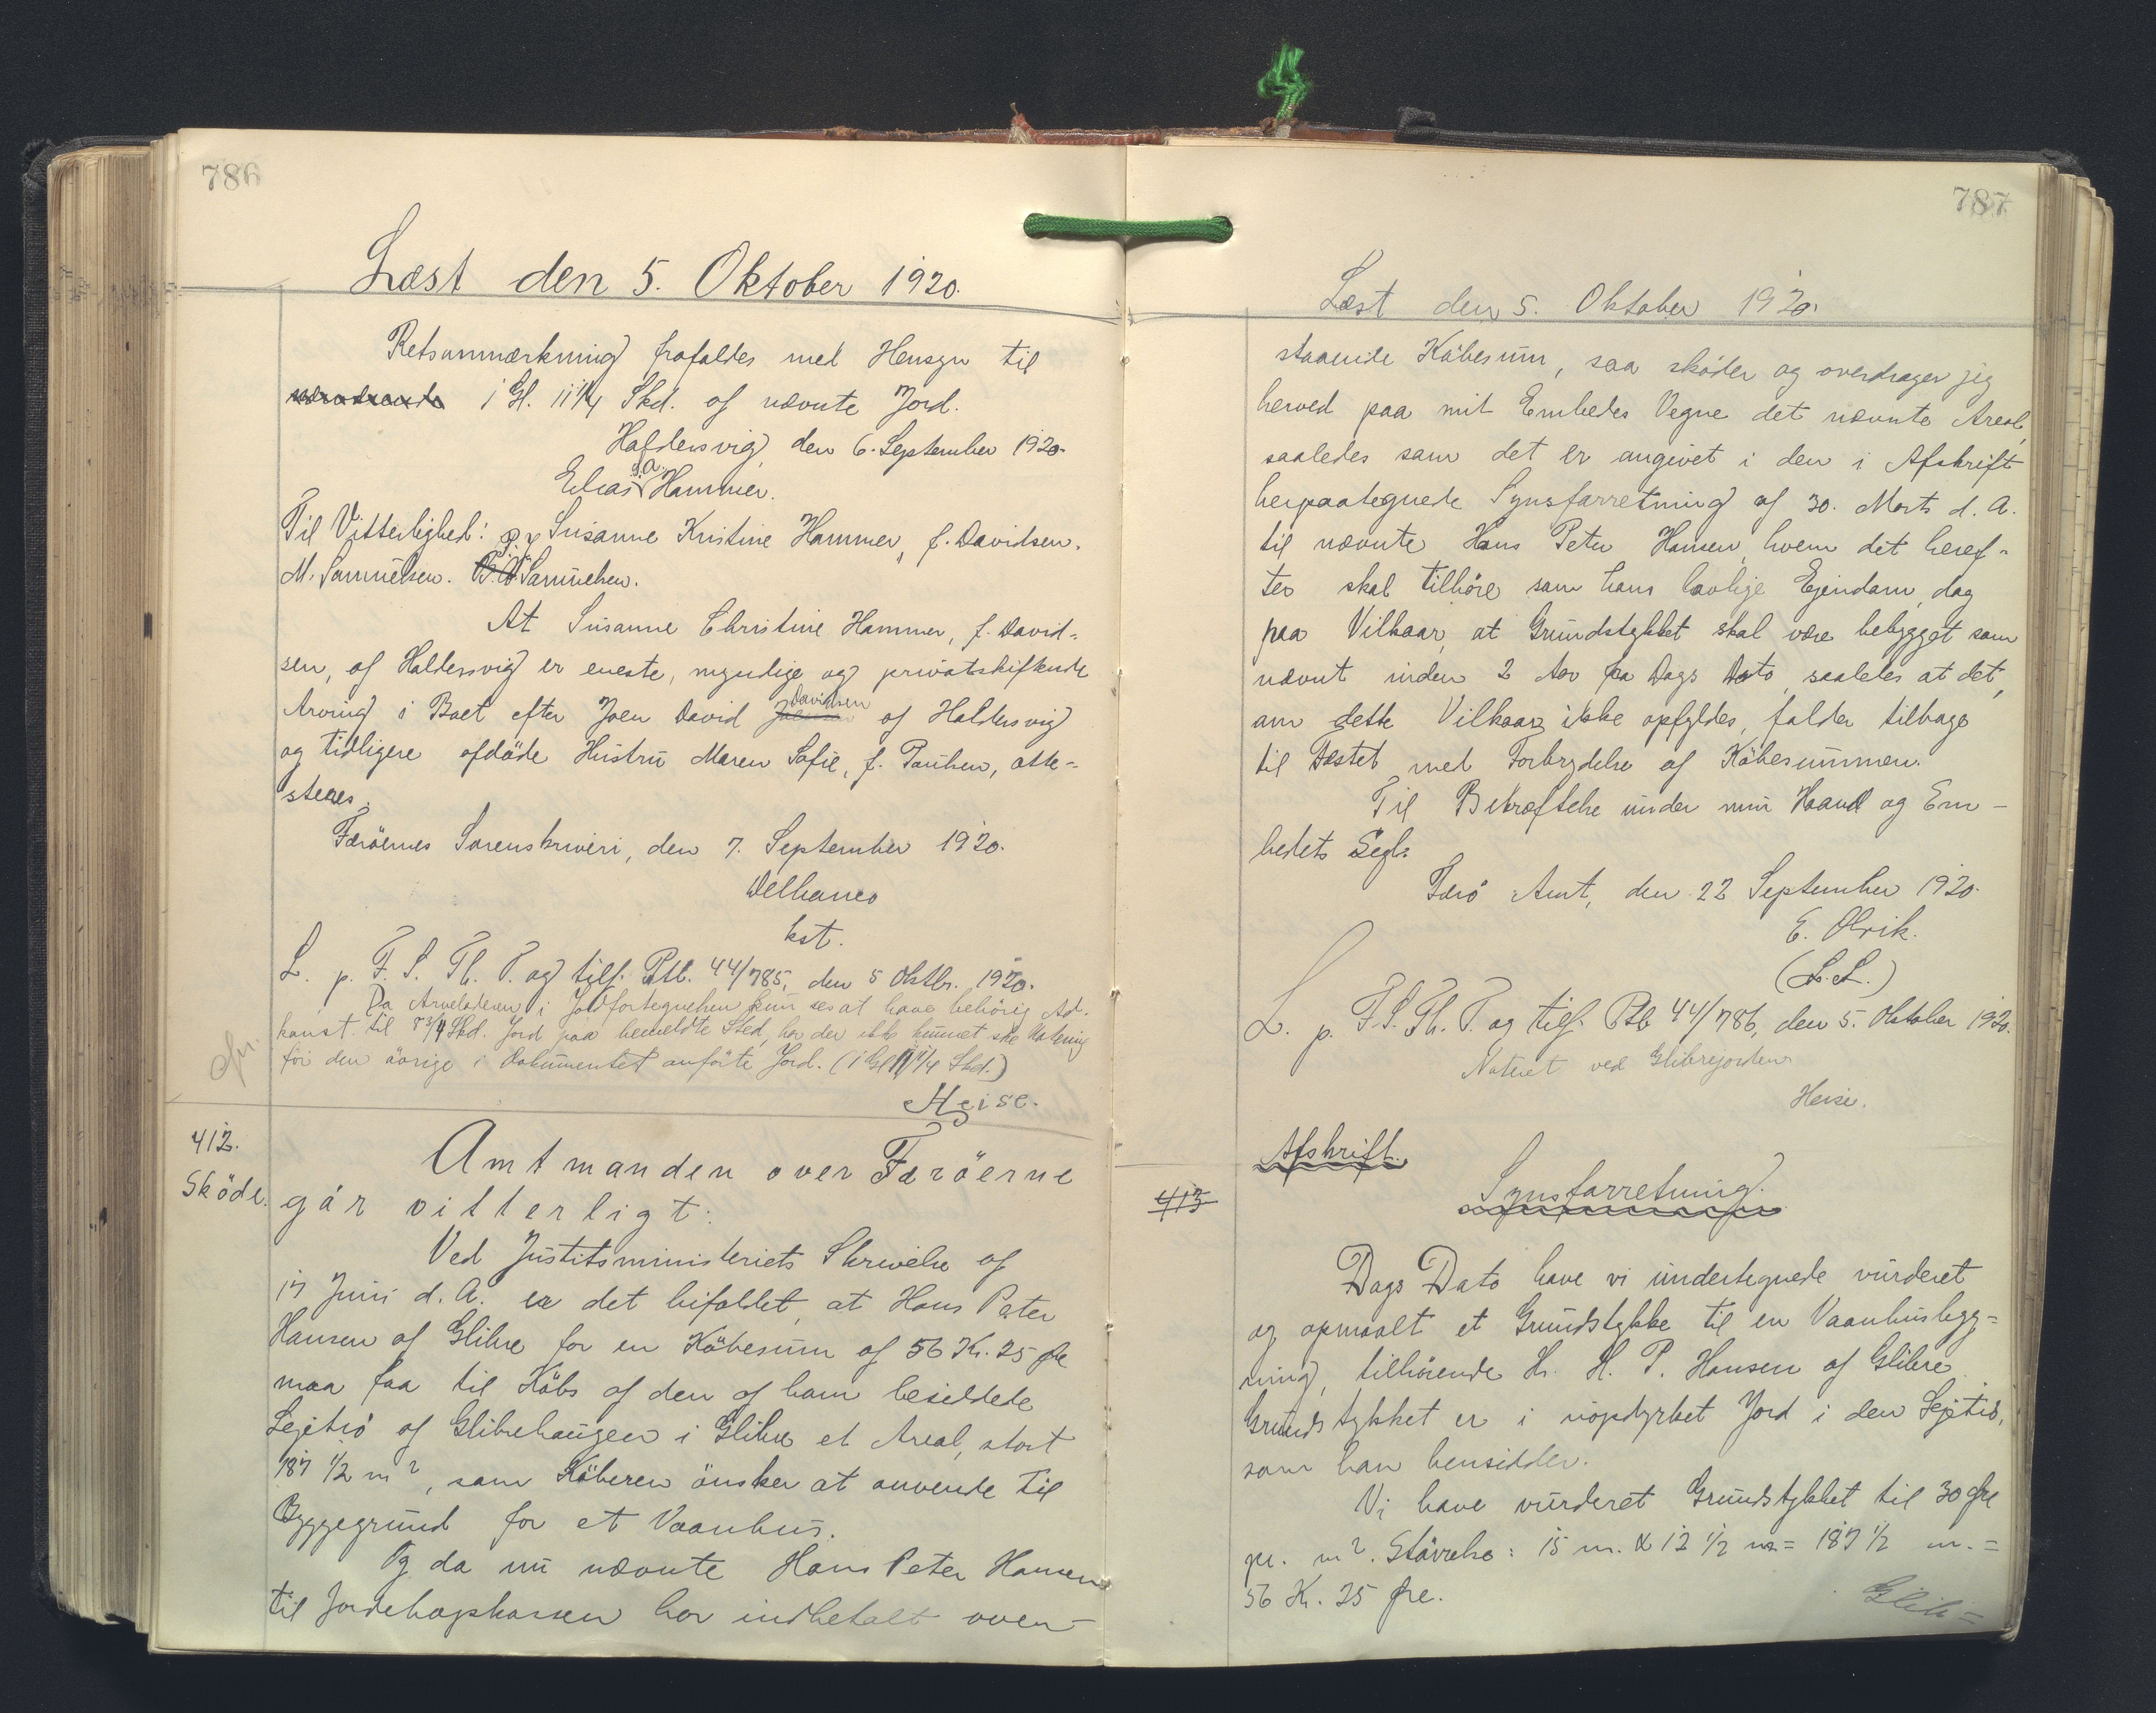 786
Læst den 5. Oktober 1920.
Retsanmærkning frafaldes med Hensyn til
1 Gl. 11 1/4 Skd. af nævnte Jord.
Haldersvig, den 6. September 1920.
Elias Hammer.
Til Vitterlighed: Susanne Kristine Hammer, f. Davidsen.
M. Samuelsen. Samuelsen.
At Susanne Christine Hammer, f. David-
sen, af Haldersvig er eneste, myndige og privatskiftende
Arving i Boet efter Joen David Davidsen af Haldersvig
og tidligere afdöde Hustru Maren Sofie, f. Poulsen, atte-
steres.
Færöernes Sorenskriveri, den 7. September 1920.
Welhaven
kst.
L. p. F. S. Th. T. og tilf. Ptb. 44/785, den 5 Oktbr. 1920.
Da Arveladeren i Jordfortegnelsen kun ses at have behörig Ad-
komst til 8 3/4 Skd. Jord paa bemeldte Sted, har der ikke kunnet ske Notering
for den övrige i Dokumentet anförte Jord. (1 Gl 11 1/4 Skd.)
cfr.
Heise.
412.
Sköde.
Amtmanden over Færöerne
gör vitterligt:
Ved Justitsministeriets Skrivelse af
17 Juni d. A. er det bifaldet, at Hans Peter
Hansen af Glibre for en Köbesum af 56 Kr. 25 Øre
maa faa til Köbs af den af ham besiddede
Lejetrö af Glibrehaugen i Glibre et Areal, stort
187 1/2 m², som Köberen önsker at anvende til
Byggegrund for et Vaanhus.
Og da nu nævnte Hans Peter Hansen
til Jordebogskassen har indbetalt oven-
787
Læst den 5. Oktober 1920.
staaende Köbesum, saa sköder og overdrager jeg
herved paa mit Embedes Vegne det nævnte Areal,
saaledes som det er angivet i den i Afskrift
herpaategnede Synsforretning af 30. Marts d. A.
til nævnte Hans Peter Hansen, hvem det heref-
ter skal tilhöre som hans lovlige Ejendom, dog
paa Vilkaar, at Grundstykket skal være bebygget som
nævnt inden 2 Aar fra Dags Dato, saaledes at det,
om dette Vilkaar ikke opfyldes, falder tilbage
til Fæstet med Forbrydelse af Köbesummen.
Til Bekræftelse under min Haand og Em-
bedets Segl.
Færö Amt, den 22 September 1920.
E. Olrik.
(L.S.)
L. p. F. S. Th. T. og tilf. Ptb 44/786, den 5. Oktober 1920.
Noteret ved Glibrejorden
Heise.
Afskrift.
413
Synsforretning.
Dags Dato have vi undertegnede vurderet
og opmaalt et Grundstykke til en Vaanhusbygg-
ning, tilhörende Hr. H. P. Hansen af Glibre.
Grundstykket er i uopdyrket Jord i den Lejetrö,
som han hensidder.
Vi have vurderet Grundstykket til 30 Øre
pr. m². Störrelse: 15 m. x 12 1/2 m = 187 1/2 m. =
56 Kr. 25 Øre.
Glib-